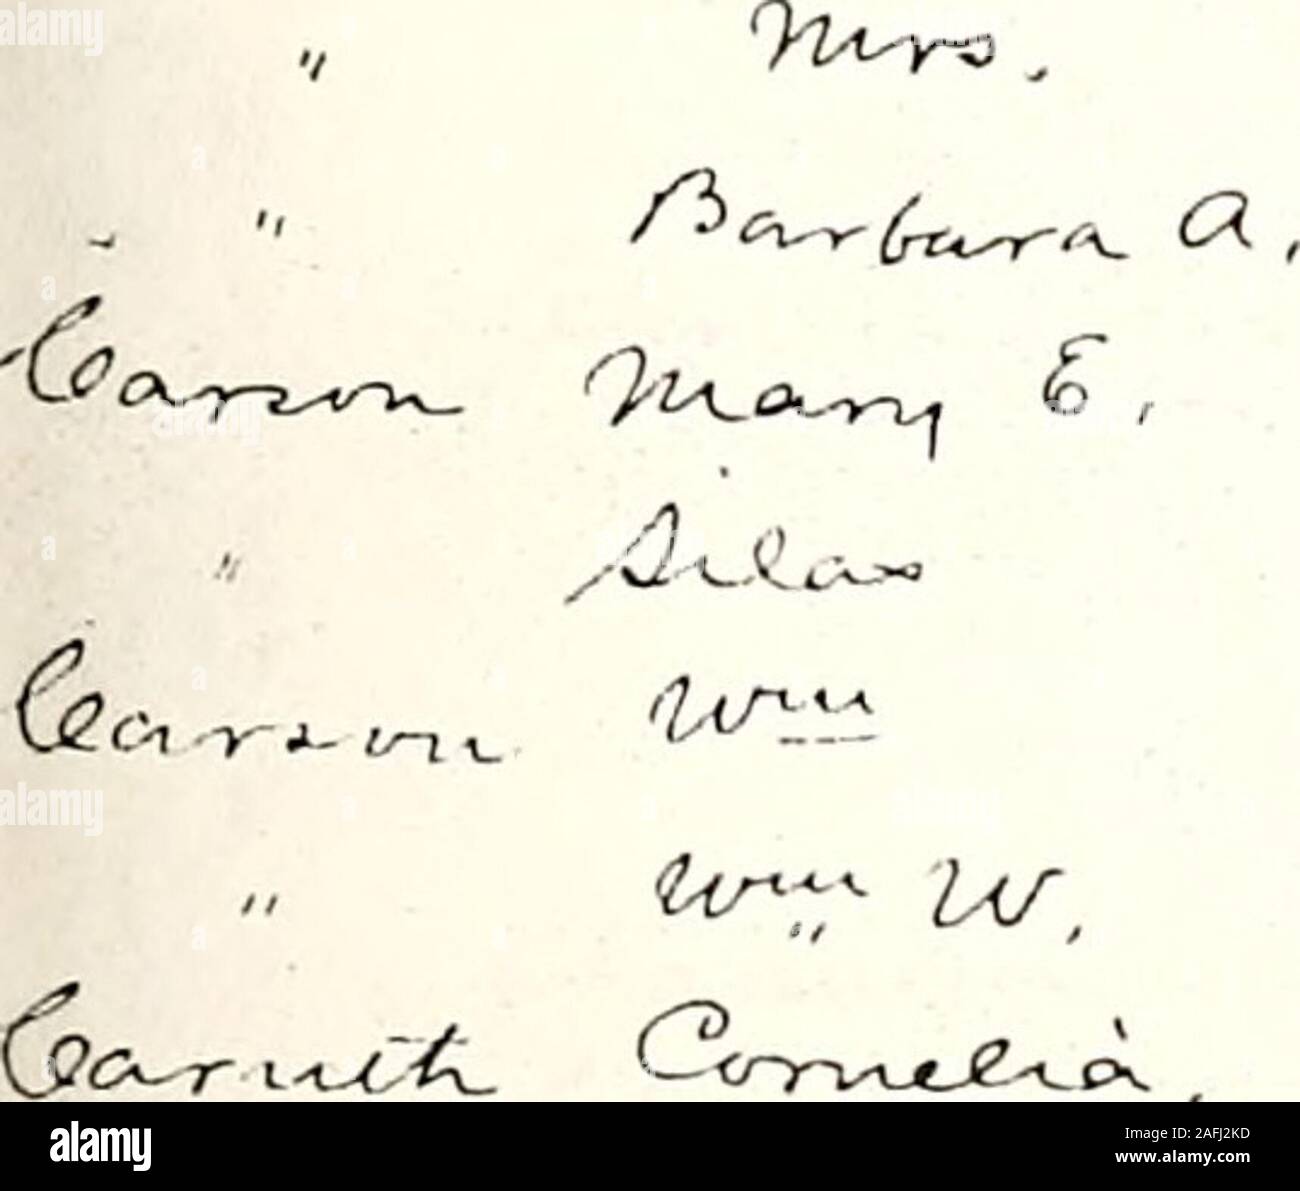 " Mrs.
" Barbara A.
Carson Mary E.
" Silas
Carson Wm
" Wm W.
Caruth Cornelia,
alamy
Image ID: 2AFJ2KD
www.alamy.com